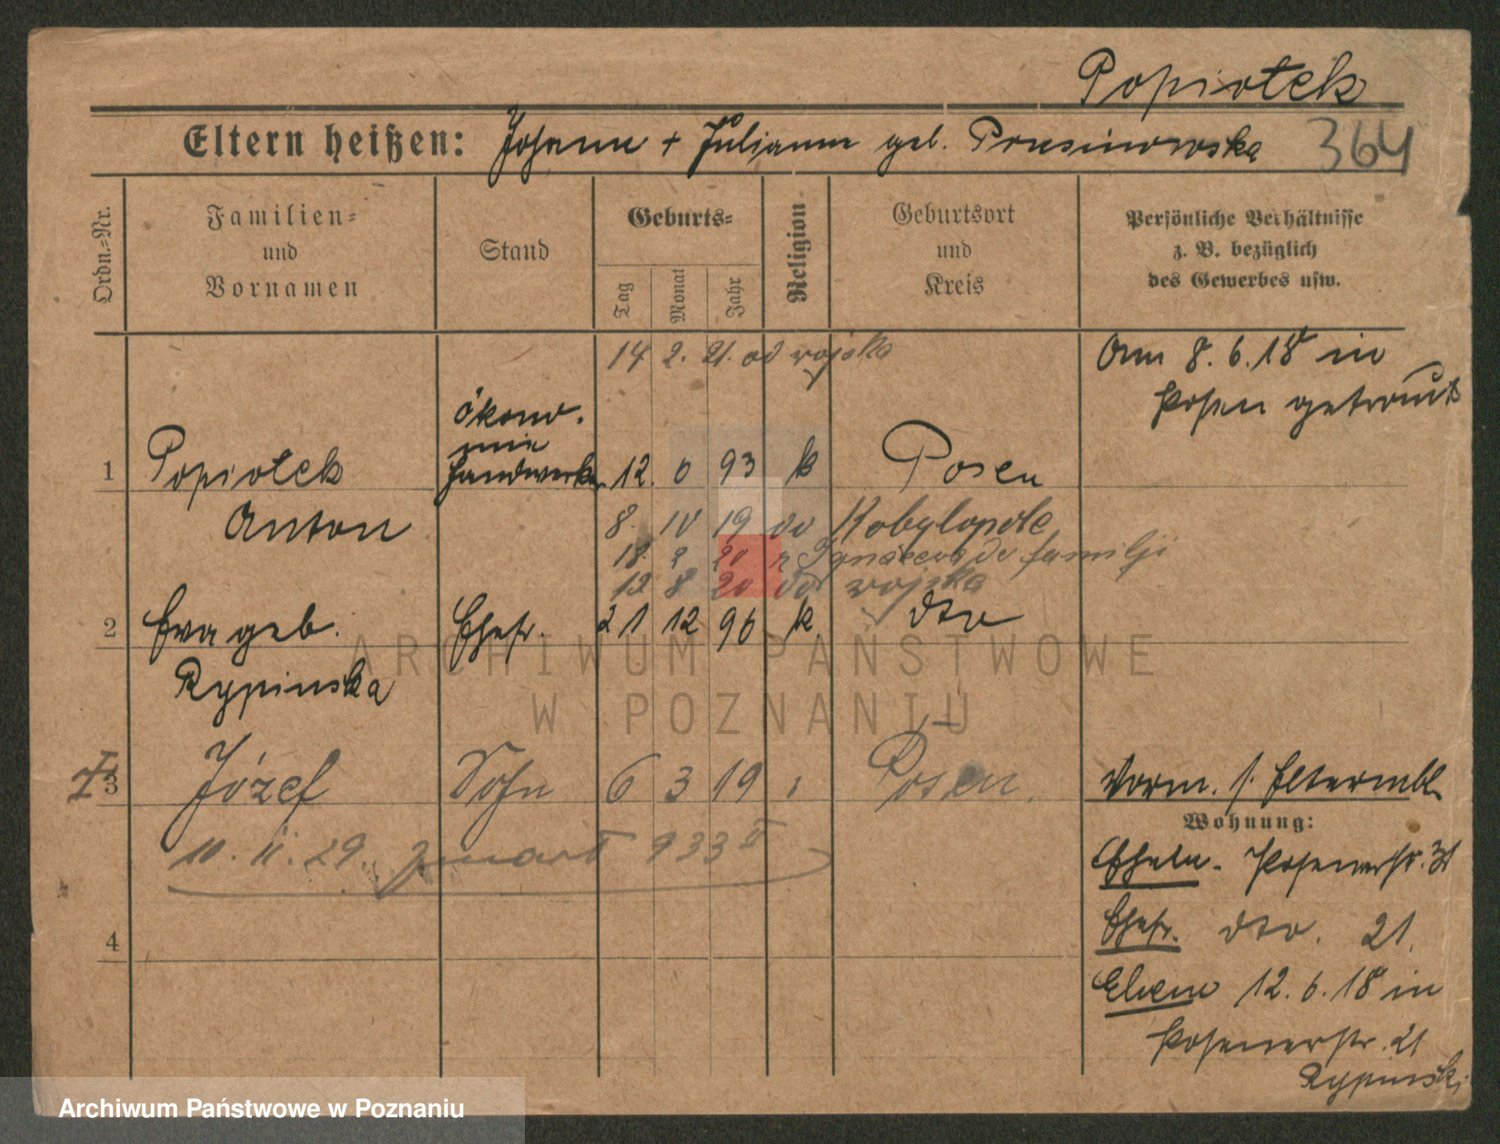 Popiołek
Eltern heißen: Johann + Julianne geb. Prusinowska 364
Ordn.-Nr.
Familien-
und
Vornamen
Stand
Geburts-
Tag
Monat
Jahr
Religion
Geburtsort
und
Kreis
Persönliche Verhältnisse
z. B. bezüglich
des Gewerbes usw.
14 2. 21. od wojska
Am 8.6.18 in
Posen getraut
Ökono-
mie
handwerker
1 Popiołek 12. 6 93 k Posen
Anton
8. IV 19 do Kobylopole
18. 2 20 z familji
12 8 20 do wojska
2 Eva geb. Ehefr. 21 12 96 k dto
Rypinska
ARCHIWUM PAŃSTWOWE
W POZNANIU
3 Józef Sohn 6 3 19 Posen.
Vorm. s. Elternbl.
10. 11. 29. 933
Wohnung:
Ehem. Posenerstr. 31
Ehefr. dto. 21.
4
12.6.18 in
Posenerstr. 21
Rypinski
Archiwum Państwowe w Poznaniu